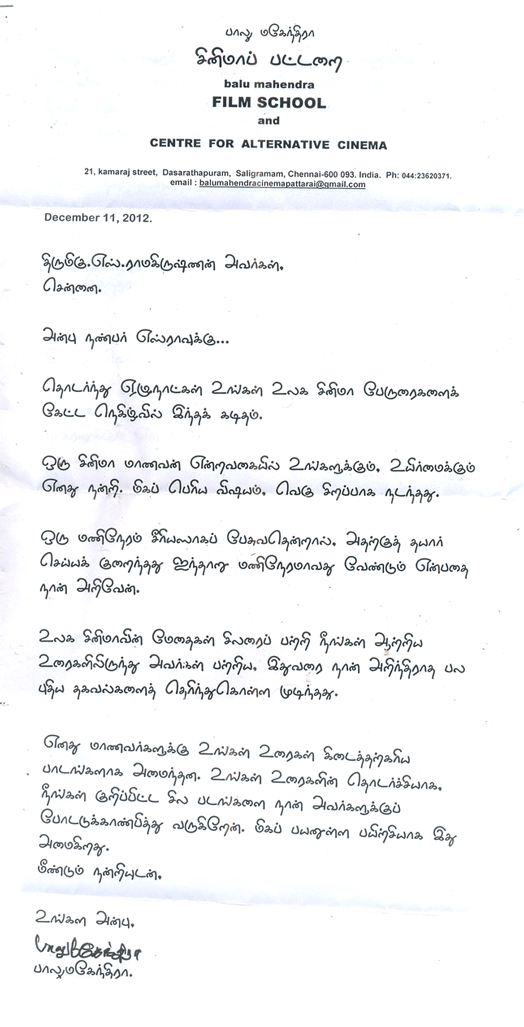 பாலு மகேந்திரா
சினிமாப் பட்டறை
balu mahendra
FILM SCHOOL
and
CENTRE FOR ALTERNATIVE CINEMA
21, kamaraj street, Dasarathapuram, Saligramam, Chennai-600 093. India. Ph: 044:23620371.
email : balumahendracinemapattarai@gmail.com
December 11, 2012.
திருமிகு.எஸ்.ராமகிருஷ்ணன் அவர்கள்.
சென்னை.
அன்பு நண்பர் எஸ்ராவுக்கு...
தொடர்ந்து ஏழுநாட்கள் உங்கள் உலக சினிமா பேருரைகளைக்
கேட்ட நெகிழ்வில் இந்தக் கடிதம்.
ஒரு சினிமா மாணவன் என்றவகையில் உங்களுக்கும், உயிர்மைக்கும்
எனது நன்றி. மிகப் பெரிய விஷயம். வெகு சிறப்பாக நடந்தது.
ஒரு மணிநேரம் சீரியஸாகப் பேசுவதென்றால், அதற்குத் தயார்
செய்யக் குறைந்தது ஐந்தாறு மணிநேரமாவது வேண்டும் என்பதை
நான் அறிவேன்.
உலக சினிமாவின் மேதைகள் சிலரைப் பற்றி நீங்கள் ஆற்றிய
உரைகளிலிருந்து அவர்கள் பற்றிய, இதுவரை நான் அறிந்திராத பல
புதிய தகவல்களைத் தெரிந்துகொள்ள முடிந்தது.
எனது மாணவர்களுக்கு உங்கள் உரைகள் கிடைத்தற்கரிய
பாடங்களாக அமைந்தன. உங்கள் உரைகளின் தொடர்ச்சியாக,
நீங்கள் குறிப்பிட்ட சில படங்களை நான் அவர்களுக்குப்
போட்டுக்காண்பித்து வருகிறேன். மிகப் பயனுள்ள பயிற்சியாக இது
அமைகிறது.
மீண்டும் நன்றியுடன்.
உங்கள அன்பு,
பாலுமகேந்திரா
பாலுமகேந்திரா.